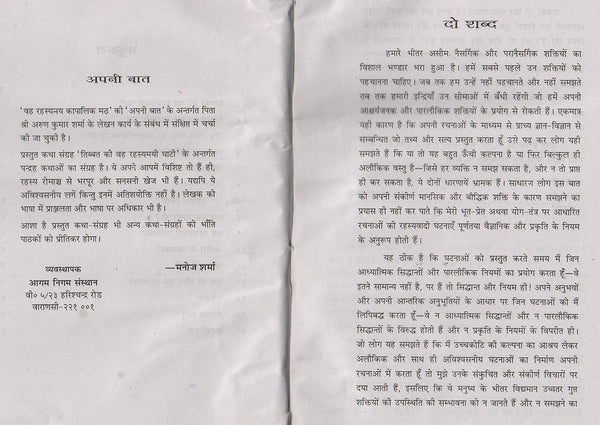 अपनी बात
'वह रहस्यमय कापालिक मठ' की 'अपनी बात' के अन्तर्गत पिता
श्री अरुण कुमार शर्मा के लेखन कार्य के संबंध में संक्षिप्त में चर्चा
की जा चुकी है।
प्रस्तुत कथा संग्रह 'तिब्बत की वह रहस्यमयी घाटी' के अन्तर्गत
पन्द्रह कथाओं का संग्रह है। ये अपने आपमें विशिष्ट तो हैं ही,
रहस्य रोमाञ्च से भरपूर और सनसनी खेज भी हैं। यद्यपि ये
अविश्वसनीय लगें किन्तु इनमें अतिशयोक्ति नहीं है। लेखक की
भाषा में प्राञ्जलता और भाषा पर अधिकार भी है।
आशा है प्रस्तुत कथा-संग्रह भी अन्य कथा-संग्रहों की भाँति
पाठकों को प्रीतिकर होगा।
—मनोज शर्मा
व्यवस्थापक
आगम निगम संस्थान
बी० ५/२३ हरिश्चन्द्र रोड
वाराणसी-२२१ ००१
दो शब्द
हमारे भीतर असीम नैसर्गिक और परानैसर्गिक शक्तियों का
विशाल भण्डार भरा हुआ है। हमें सबसे पहले उन शक्तियों को
पहचानना चाहिए। जब तक हम उन्हें नहीं पहचानते और नहीं समझते
तब तक हमारी इन्द्रियाँ उन सीमाओं में बँधी रहेंगी जो हमें अपनी
आश्चर्यजनक और पारलौकिक शक्तियों के प्रयोग से रोकती हैं। एकमात्र
यही कारण है कि अपनी रचनाओं के माध्यम से प्राच्य ज्ञान-विज्ञान से
सम्बन्धित जो तथ्य और सत्य प्रस्तुत करता हूँ उसे पढ़ कर लोग यही
समझते हैं कि या तो यह बहुत ऊँची कल्पना है या फिर बिल्कुल ही
अलौकिक वस्तु है—जिसे हर व्यक्ति न समझ सकता है, और न तो प्राप्त
ही कर सकता है, ये दोनों धारणायें भ्रामक हैं। साधारण लोग इस बात
को अपनी संकीर्ण मानसिक और बौद्धिक शक्ति के कारण समझने का
प्रयास ही नहीं कर पाते कि मेरी भूत-प्रेत अथवा योग-तंत्र पर आधारित
रचनाओं की रहस्यवादी घटनाएँ पूर्णतया वैज्ञानिक और प्रकृति के नियम
के अनुरूप होती हैं।
यह ठीक है कि घटनाओं को प्रस्तुत करते समय मैं जिन
आध्यात्मिक सिद्धान्तों और पारलौकिक नियमों का प्रयोग करता हूँ—वे
इतने सामान्य नहीं है, पर हैं तो सिद्धान्त और नियम ही! अपने अनुभवों
और अपनी आन्तरिक अनुभूतियों के आधार पर जिन घटनाओं को मैं
लिपिबद्ध करता हूँ—वे न आध्यात्मिक सिद्धान्तों और न पारलौकिक
सिद्धान्तों के विरुद्ध होती हैं और न प्रकृति के नियमों के विपरीत ही।
जो लोग यह समझते हैं कि मैं उच्चकोटि की कल्पना का आश्रय लेकर
अलौकिक और साथ ही अविश्वसनीय घटनाओं का निर्माण अपनी
रचनाओं में करता हूँ तो मुझे उनके संकुचित और संकीर्ण विचारों पर
दया आती हैं, इसलिए कि वे मनुष्य के भीतर विद्यमान उच्चतर गुप्त
शक्तियों की उपस्थिति की सम्भावना को न जानते हैं और न समझने का